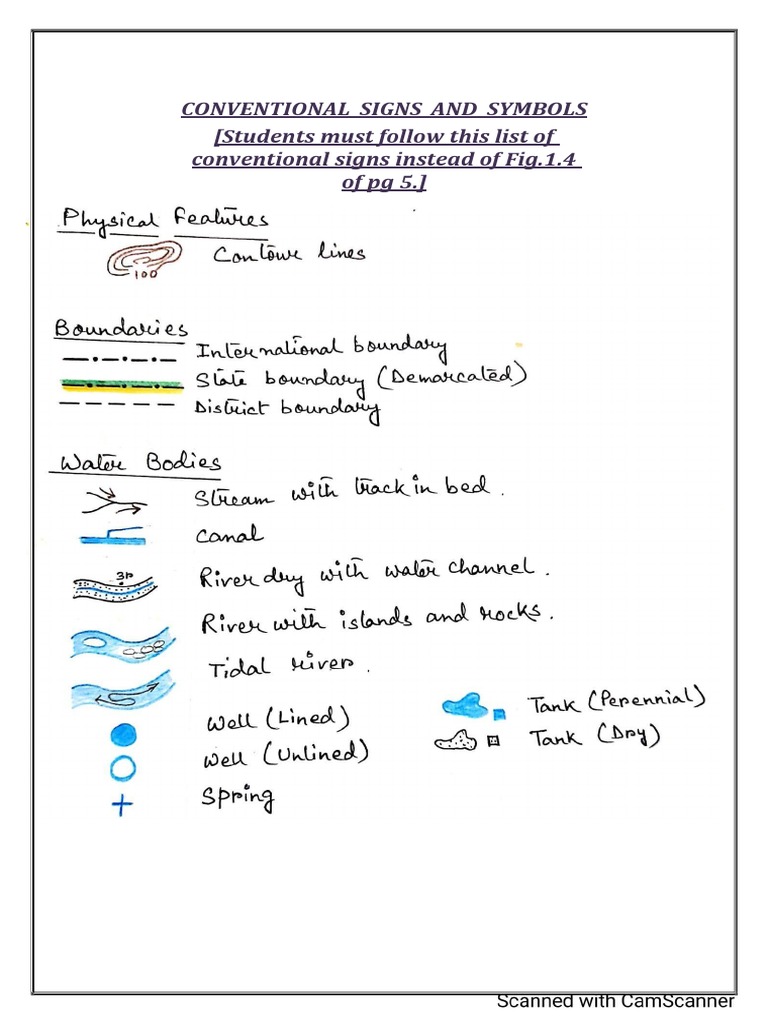 CONVENTIONAL SIGNS AND SYMBOLS
[Students must follow this list of
conventional signs instead of Fig.1.4
of pg 5.]
Physical Features
100
Contour lines
Boundaries
International boundary
State boundary (Demarcated)
District boundary
Water Bodies
Stream with track in bed.
Canal
3r
River dry with water channel.
River with islands and rocks.
Tidal river.
Well (Lined)
Tank (Perennial)
Well (Unlined)
Tank (Dry)
Spring
Scanned with CamScanner